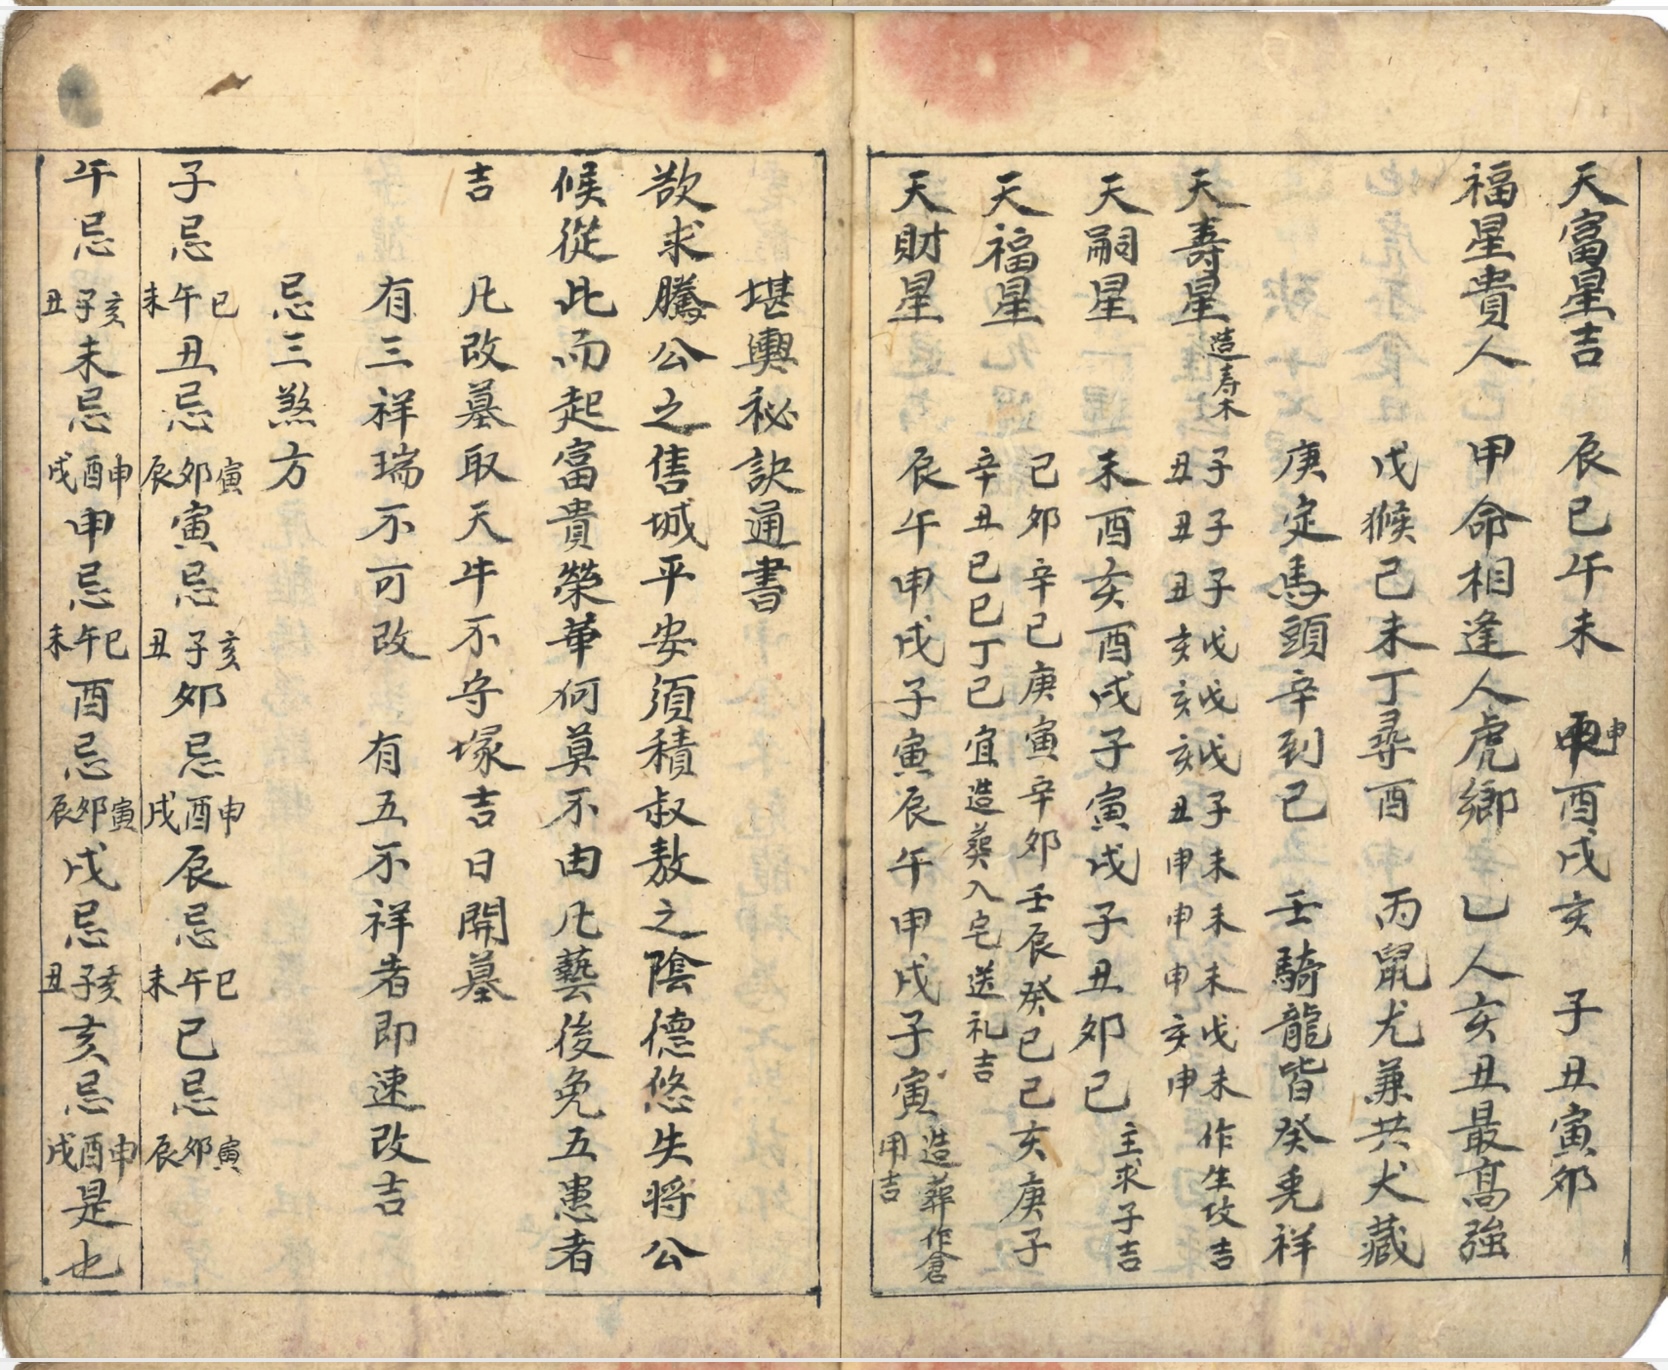 天富星吉 辰巳午未 申酉戌亥 子丑寅卯
福星貴人 甲命相逢人虎鄉 乙人亥丑最高強
戊猴己未丁尋酉 丙鼠尤兼共犬藏
庚定馬頭辛到巳 壬騎龍背癸兎祥
天壽星 造壽木 子子子戊戊戊子未未未戊未作生坟吉
丑丑丑亥亥亥丑申申申亥申
天嗣星 未酉亥酉戌子寅戌子丑卯巳 主求子吉
天福星 己卯辛巳庚寅辛卯壬辰癸巳己亥庚子
辛丑乙巳丁巳宜造葵入宅送礼吉
天財星 辰午申戌子寅辰午申戌子寅 造葬作倉
用吉
堪輿秘訣通書
欲求騰公之售城平安須積叔敖之陰德悠失將公
候從此而起富貴榮華何莫不由凡藝後免五患者
吉 凡改墓取天牛不守塚吉日開墓
有三祥瑞不可改 有五不祥者即速改吉
忌三煞方
子忌巳午未丑忌寅卯辰寅忌亥子丑卯忌申酉戌辰忌巳午未巳忌寅卯辰
午忌亥子丑未忌申酉戌申忌巳午未酉忌寅卯辰戌忌亥子丑亥忌申酉戌是也